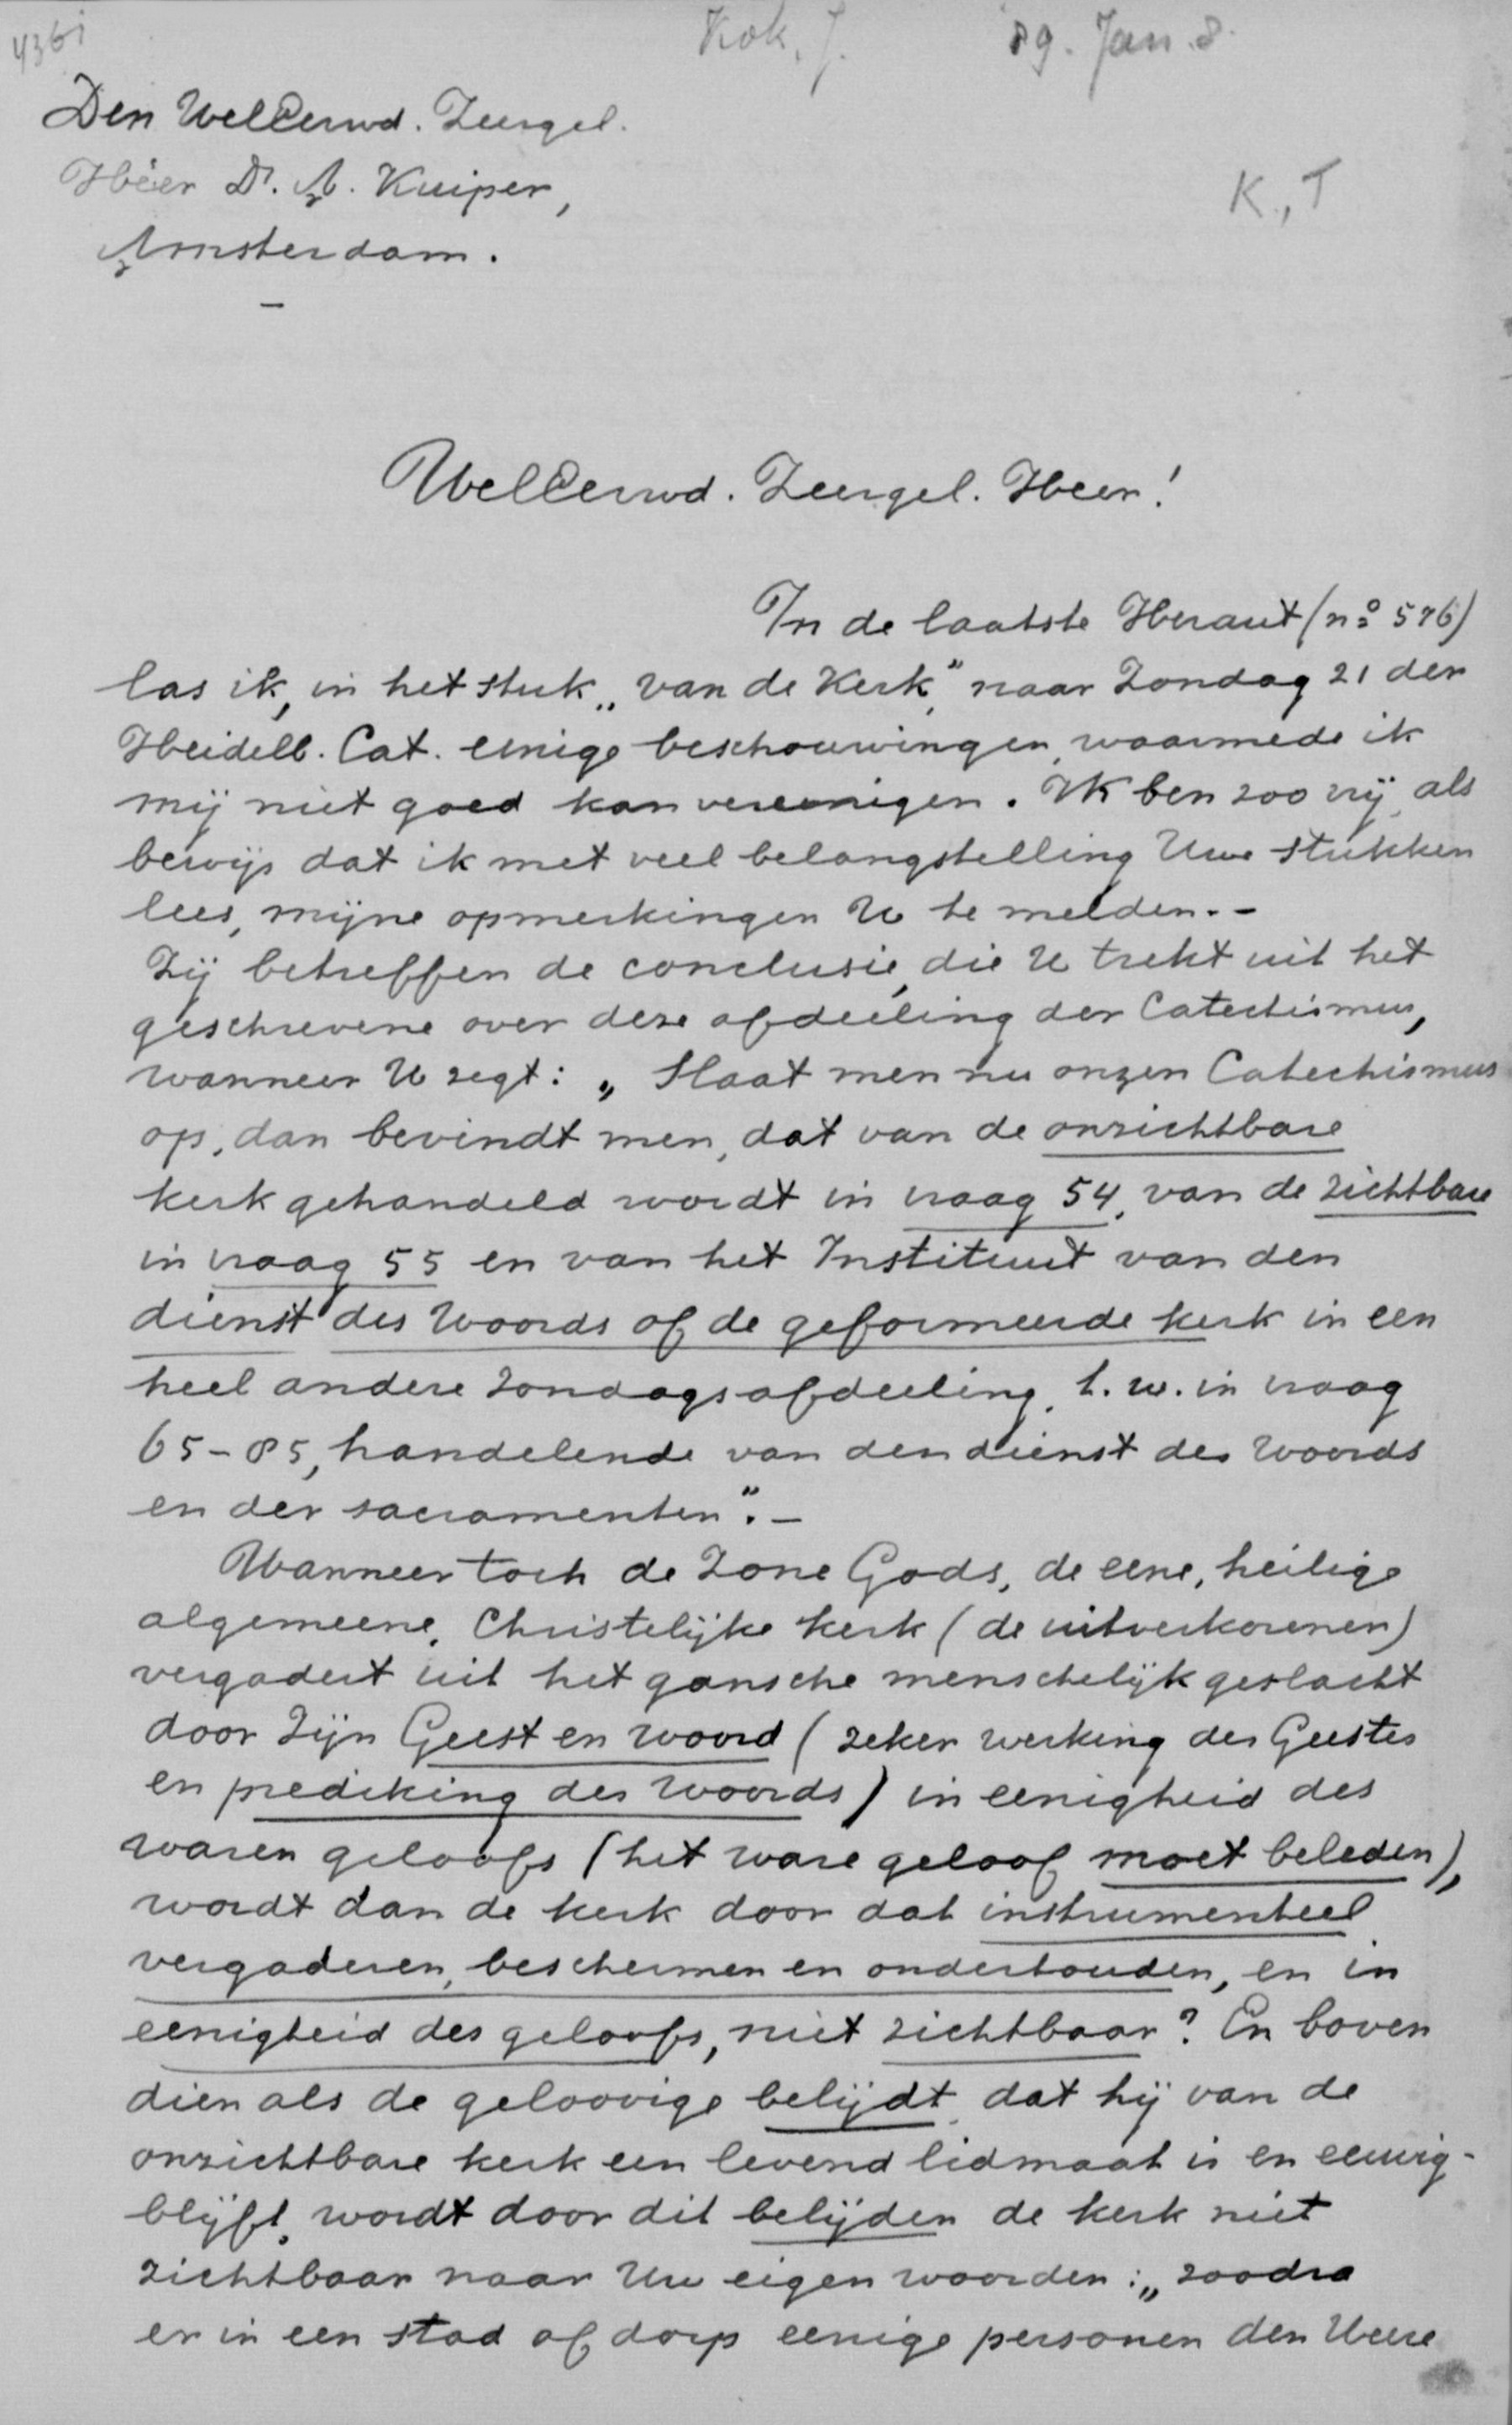 4361
Kok, J. 89. Jan. 8.
Den WelEerwd. Zeergel.
Heer Dr. A. Kuiper,
K., T
Amsterdam.
WelEerwd. Zeergel. Heer!
In de laatste Heraut (no 576)
las ik, in het stuk „van de Kerk," naar Zondag 21 der
Heidelb. Cat. eenige beschouwingen, waarmede ik
mij niet goed kan vereenigen. Ik ben zoo vrij, als
bewijs dat ik met veel belangstelling Uwe stukken
lees, mijne opmerkingen U te melden. -
Zij betreffen de conclusie, die U trekt uit het
geschrevene over deze afdeeling der Catechismus,
wanneer U zegt: „Slaat men nu onzen Catechismus
op, dan bevindt men, dat van de onzichtbare
kerk gehandeld wordt in vraag 54, van de zichtbare
in vraag 55 en van het Instituut van den
dienst des Woords of de geformeerde kerk in een
heel andere Zondagsafdeeling, t. w. in vraag
65-85, handelende van den dienst des Woords
en der sacramenten". -
Wanneer toch de Zone Gods, de eene, heilige
algemeene, Christelijke kerk (de uitverkorenen)
vergadert uit het gansche menschelijk geslacht
door Zijn Geest en woord (zeker werking des Geestes
en prediking des woords) in eenigheid des
waren geloofs (het ware geloof moet beleden),
wordt dan de kerk door dat instrumenteel
vergaderen, beschermen en onderhouden, en in
eenigheid des geloofs, niet zichtbaar? En boven
dien als de geloovige belijdt, dat hij van de
onzichtbare kerk een levend lidmaat is en eeuwig -
blijft, wordt door dit belijden de kerk niet
zichtbaar naar Uw eigen woorden: „zoodra
er in een stad of dorp eenige personen den Heere